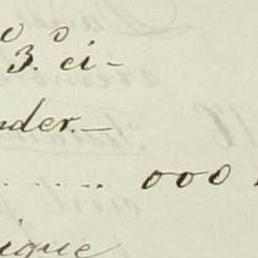 3. ei-
nder.—
..... 000
ique